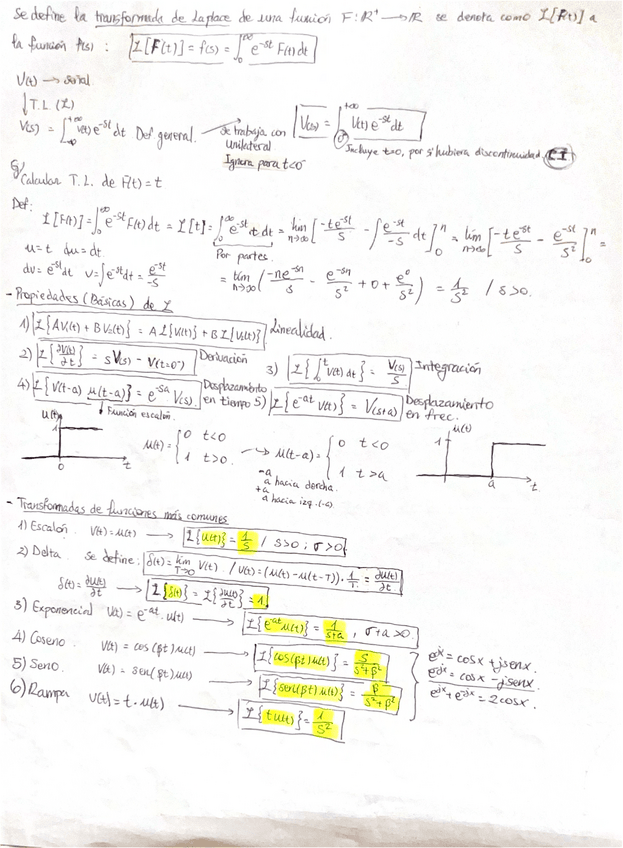 Se define la transformada de Laplace de una función F: R⁺ → R se denota como L[F(t)] a
la función f(s): L[F(t)] = f(s) = ∫₀^∞ e^-st F(t) dt
V(t) → señal
↓ T.L (L)
V(s) = ∫_-∞^+∞ V(t) e^-st dt Def general. → Se trabaja con unilateral V(s) = ∫_0^+∞ V(t) e^-st dt
Ignora para t<0⁻ Incluye t=0, por si hubiera discontinuidad. C.I
Ej/ Calcular T.L. de F(t) = t
Def:
L[F(t)] = ∫₀^∞ e^-st F(t) dt = L[t] = ∫₀^∞ e^-st t dt = lim n→∞ [-te^-st/s - ∫ e^-st/-s dt]₀ⁿ = lim n→∞ [-te^-st/s - e^-st/s²]₀ⁿ =
u = t du = dt. Por partes.
dv = e^-st dt v = ∫e^-st dt = e^-st/-s = lim n→∞ (-ne^-sn/s - e^-sn/s² + 0 + e^0/s²) = 1/s² / s>0.
- Propiedades (Básicas) de L
1) L{AV₁(t) + BV₂(t)} = A L{V₁(t)} + B L{V₂(t)} Linealidad.
2) L{∂V(t)/∂t} = sV(s) - V(t=0⁻) Derivación 3) L{∫₀^t V(t) dt} = V(s)/s Integración
4) L{V(t-a) μ(t-a)} = e^-sa V(s) Desplazamiento en tiempo 5) L{e^-at V(t)} = V(s+a) Desplazamiento en frec.
↓ Función escalón.
μ(t) 1 0 t
μ(t) = { 0 t<0 1 t>0. → μ(t-a) = { 0 t<0 1 t>a
-a a hacia dercha.
+a a hacia izq. (-a)
μ(t) 1 a t
- Transformadas de funciones más comunes
1) Escalón. V(t) = μ(t) → L{μ(t)} = 1/s / s>0; σ>0
2) Delta. Se define: δ(t) = lim T→0 V(t) / V(t) = (μ(t) - μ(t-T)) · 1/T = ∂μ(t)/∂t
δ(t) = ∂μ(t)/∂t → L{δ(t)} = L{∂μ(t)/∂t} = 1
3) Exponencial V(t) = e^-at · μ(t) → L{e^-at μ(t)} = 1/s+a, σ+a>0
4) Coseno. V(t) = cos(βt) μ(t) → L{cos(βt) μ(t)} = s/s²+β²
5) Seno. V(t) = sen(βt) μ(t) → L{sen(βt) μ(t)} = β/s²+β²
6) Rampa V(t) = t · μ(t) → L{t μ(t)} = 1/s²
e^jx = cosx + jsenx.
e^-jx = cosx - jsenx.
e^jx + e^-jx = 2cosx.